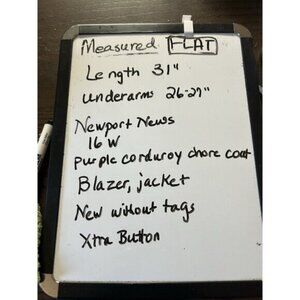 Measured FLAT
Length 31"
underarms 26-27"
Newport News
16 W
purple corduroy chore coat
Blazer, jacket
New without tags
Xtra Button